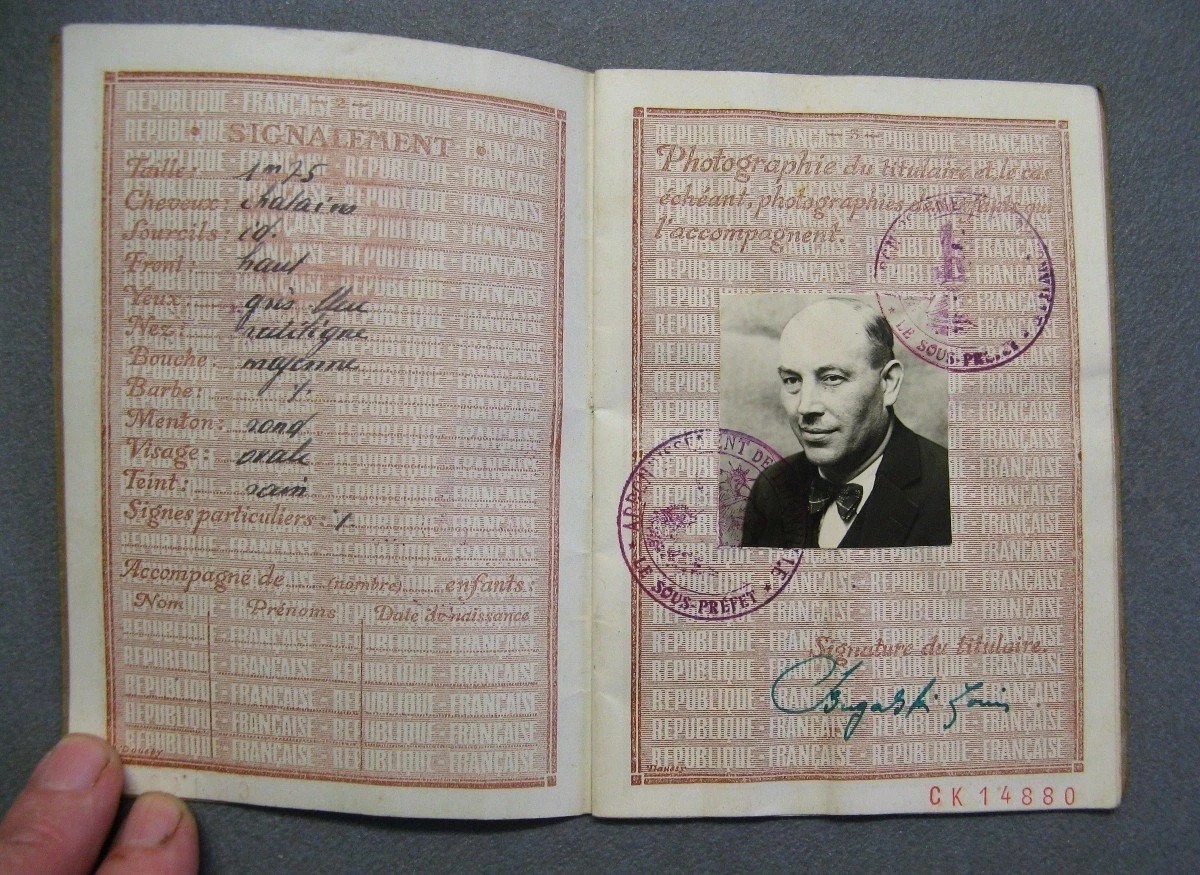 - 2 -
SIGNALEMENT
Taille : 1m75
Cheveux : chatains
Sourcils : id.
Front : haut
Yeux : gris bleu
Nez : rectiligne
Bouche : moyenne
Barbe : /.
Menton : rond
Visage : ovale
Teint : sain
Signes particuliers : /.
Accompagné de (nombre) enfants :
Nom Prénoms Date de naissance
Dauesy
Photographie du titulaire et, le cas
échéant, photographies des enfants qui
l'accompagnent.
LE SOUS-PRÉFET
ARRONDISSEMENT DE
LE SOUS-PRÉFET
Signature du titulaire.
Louis
CK 14880
RÉPUBLIQUE - FRANÇAISE